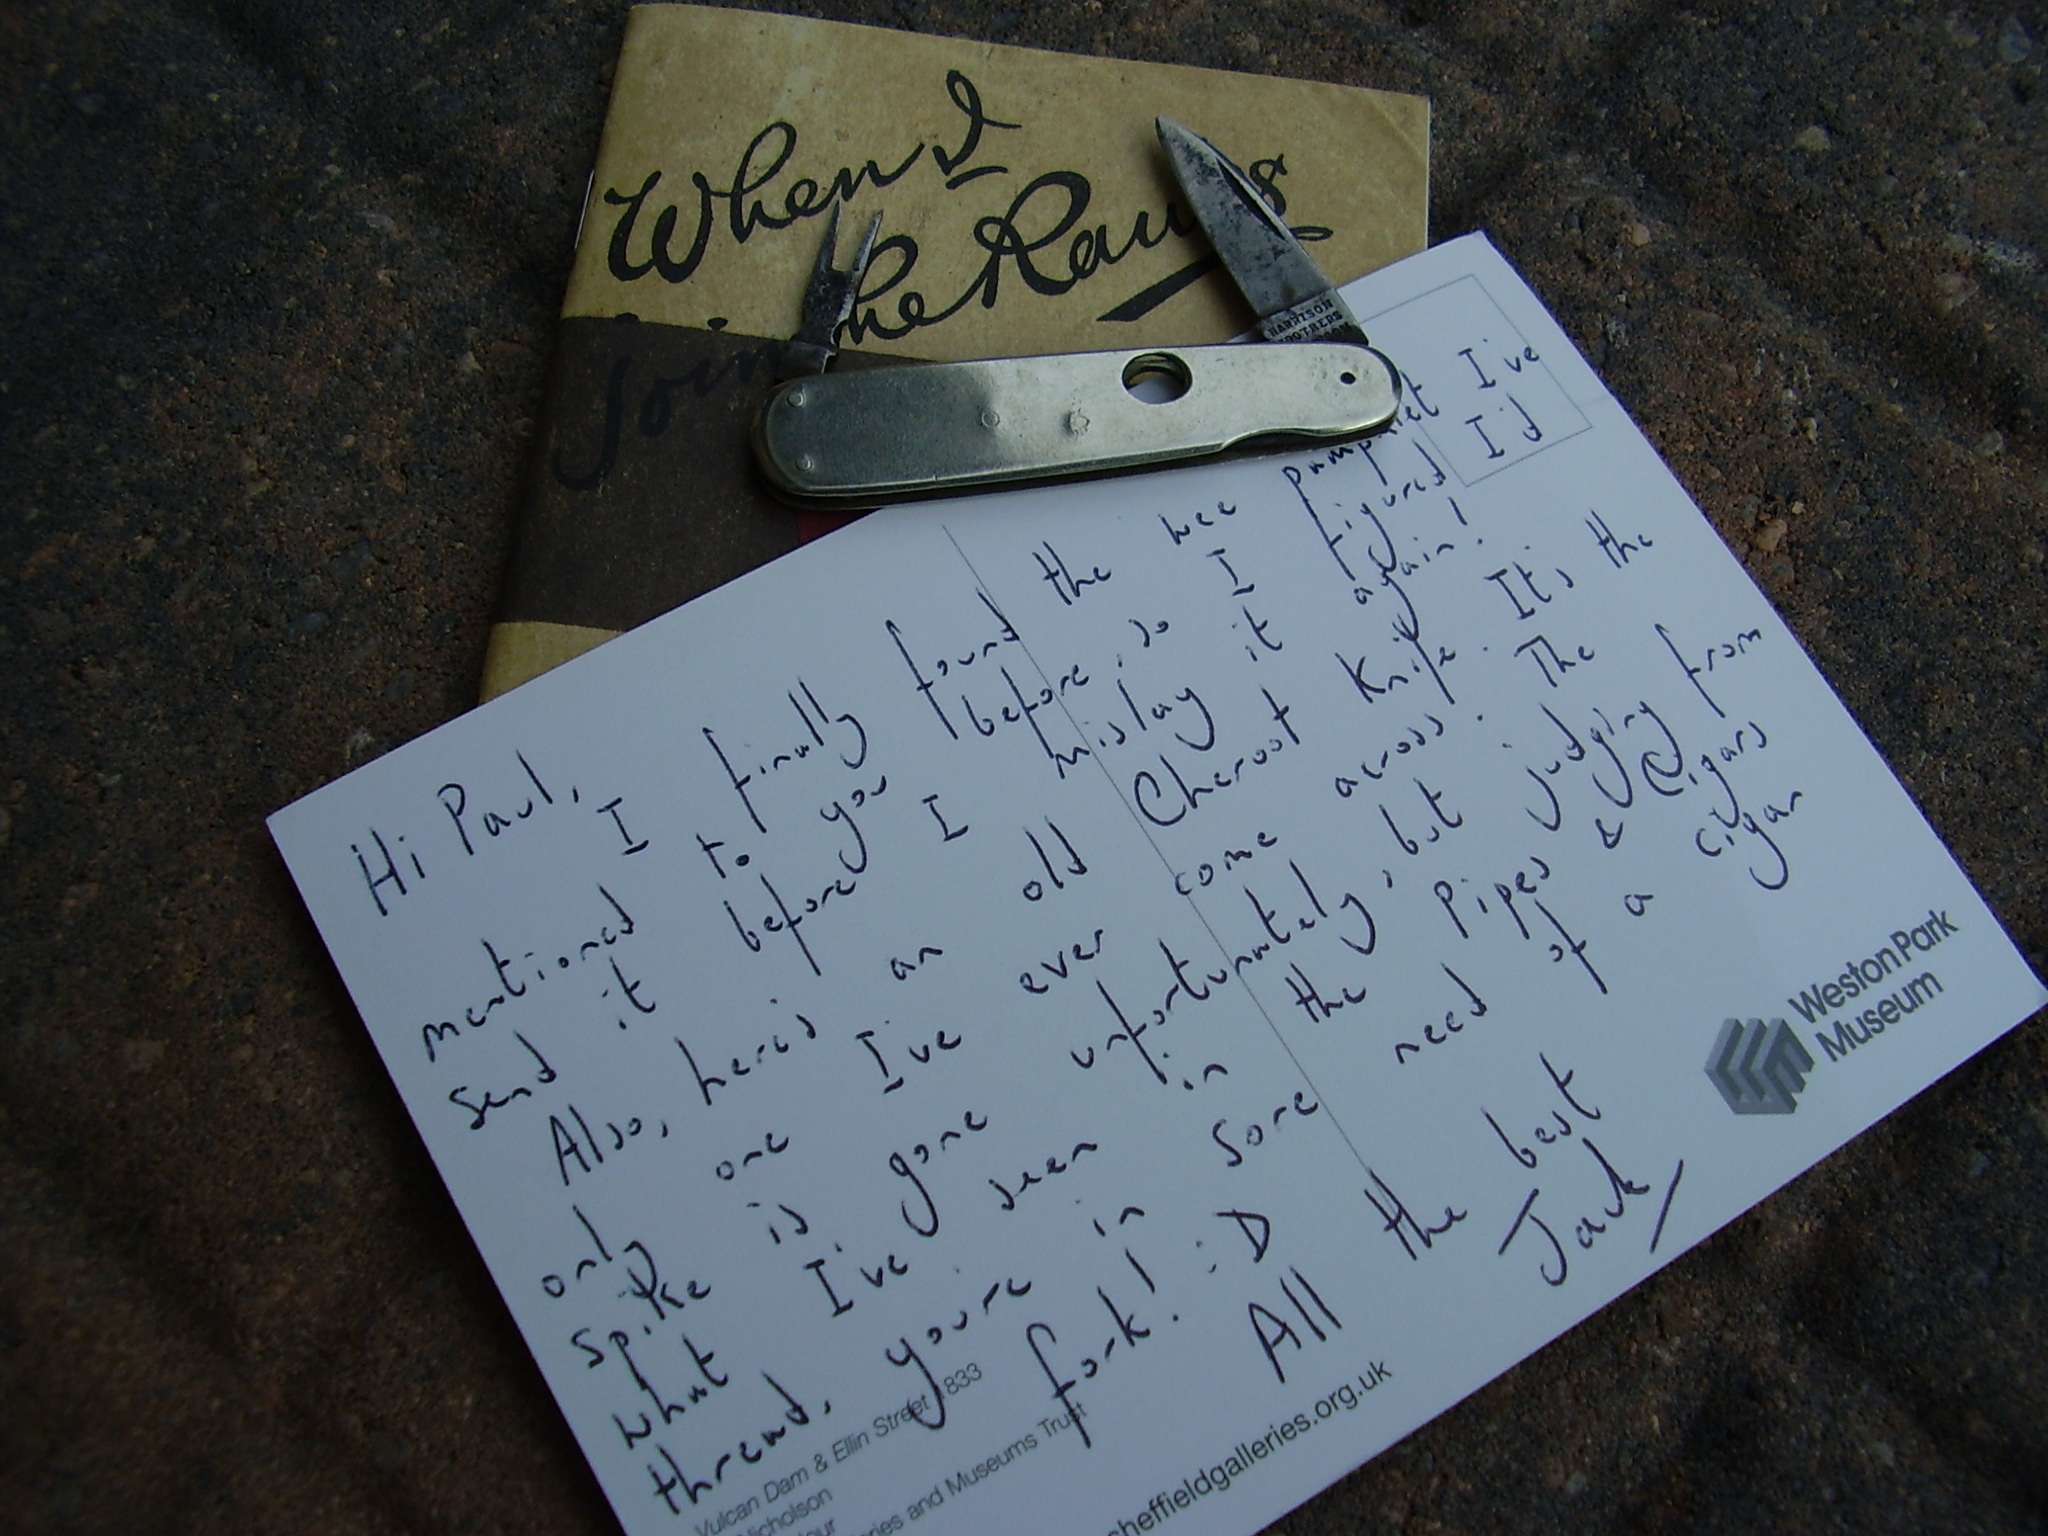 When I
the Ranks
Join
HARRISON
BROTHERS
Hi Paul,
I finally found the wee pamphlet I've
mentioned to you before, so I figured I'd
send it before I mislay it again!
Also, here's an old Cheroot Knife. It's the
only one I've ever come across. The
spike is gone unfortunately, but judging from
what I've seen in the Pipes & Cigars
thread, you're in sore need of a cigar
fork! :D
All the best
Jack
Weston Park
Museum
Vulcan Dam & Ellin Street 1833
Nicholson
and Museums Trust
sheffieldgalleries.org.uk